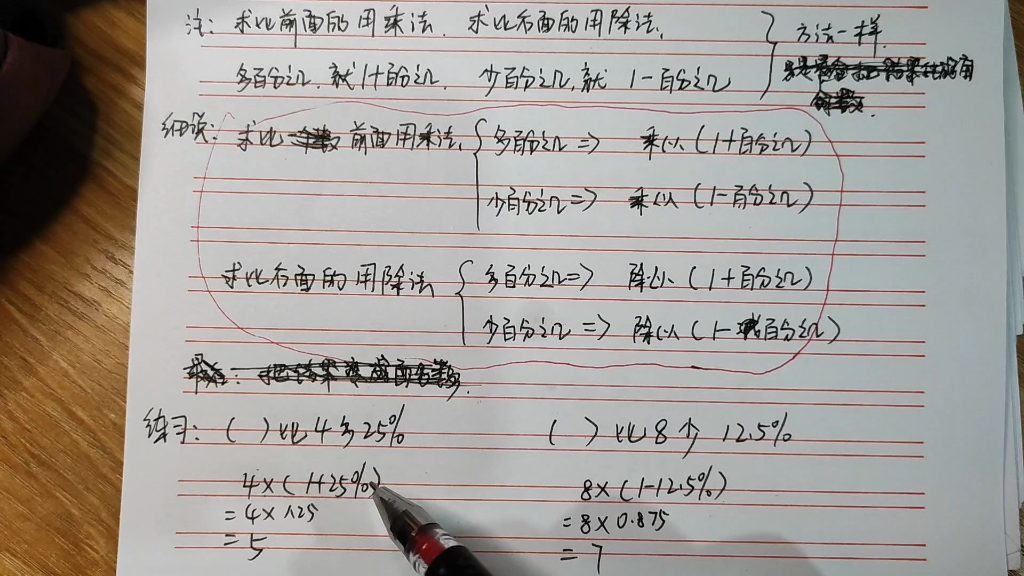 注: 求比前面的用乘法. 求比后面的用除法.
多百分之几, 就1+百分之几 少百分之几, 就 1-百分之几
方法一样.
细说: 求比 前面用乘法.
多百分之几 => 乘以 (1+百分之几)
少百分之几 => 乘以 (1-百分之几)
求比后面的用除法
多百分之几 => 除以 (1+百分之几)
少百分之几 => 除以 (1-百分之几)
练习: ( ) 比4多25%
4×(1+25%)
=4×1.25
=5
( ) 比8少 12.5%
8×(1-12.5%)
=8×0.875
=7